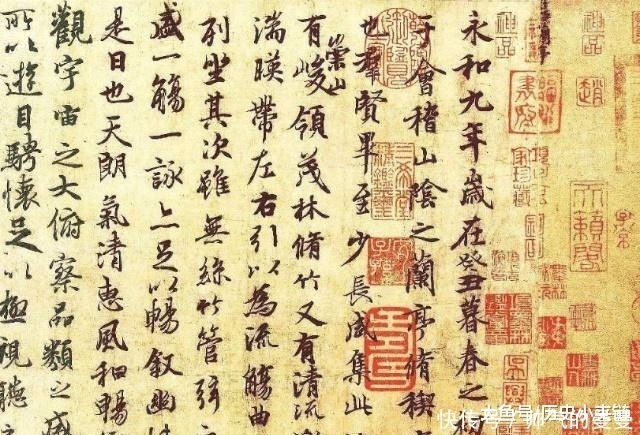 永和九年歲在癸丑暮春之
于會稽山陰之蘭亭脩稧
也羣賢畢至少長咸集此
有崇山峻領茂林脩竹又有清流
湍暎帶左右引以為流觴曲
列坐其次雖無絲竹管弦
盛一觴一詠亦足以暢敘幽
是日也天朗氣清惠風和暢
觀宇宙之大俯察品類之盛
所以遊目騁懷足以極視聽之
趙
快传号/帅气的曼曼